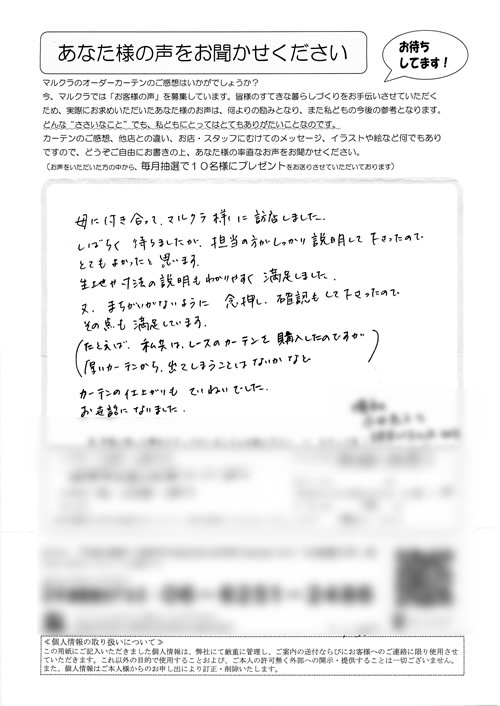 あなた様の声をお聞かせください
お待ち
してます！
マルクラのオーダーカーテンのご感想はいかがでしょうか？
今、マルクラでは「お客様の声」を募集しています。皆様のすてきな暮らしづくりをお手伝いさせていただく
ため、実際にお求めいただいたあなた様のお声は、何よりの励みとなり、また私どもの今後の参考となります。
どんな“ささいなこと”でも、私どもにとってはとてもありがたいことなのです。
カーテンのご感想、他店との違い、お店・スタッフにむけてのメッセージ、イラストや絵など何でもあり
ですので、どうぞご自由にお書きの上、あなた様の率直なお声をお聞かせください。
（お声をいただいた方の中から、毎月抽選で１０名様にプレゼントをお送りさせていただいております）
母に付き合って、マルクラ様に訪店しました。
しばらく待ちましたが、担当の方がしっかり説明して下さったので
とてもよかったと思います。
生地や寸法の説明もわかりやすく満足しました。
又、まちがいがないように念押し、確認もして下さったので
その点も満足しています。
(たとえば、私共は、レースのカーテンを購入したのですが
厚いカーテンから、出てしまうことはないかなど)
カーテンの仕上がりもていねいでした。
お世話になりました。
≪個人情報の取り扱いについて≫
この用紙にご記入いただきました個人情報は、弊社にて厳重に管理し、ご案内の送付ならびにお客様へのご連絡に限り使用させ
ていただきます。これ以外の目的で使用することおよび、ご本人の許可無く外部への開示・提供することは一切ございません。
また、個人情報はご本人様からのお申し出により訂正・削除いたします。